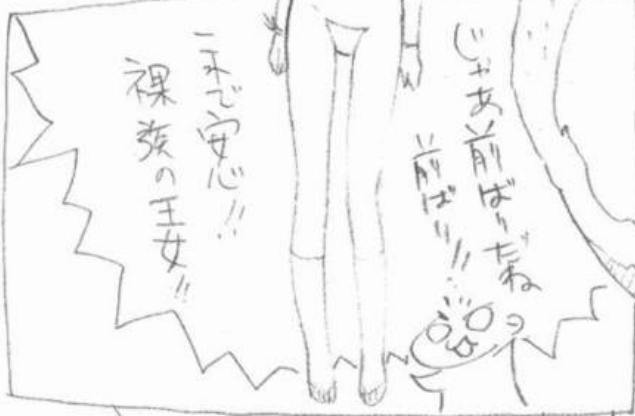 じゃあ前ばりだね
前ばり!!
これで安心!!
裸族の王女!!